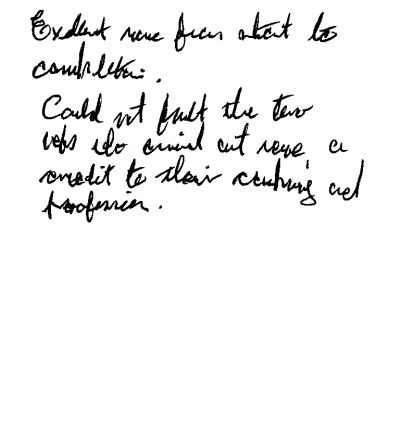 Excellent move from start to
completion.
Could not fault the two
reps who carried out move, a
credit to their company and
profession.